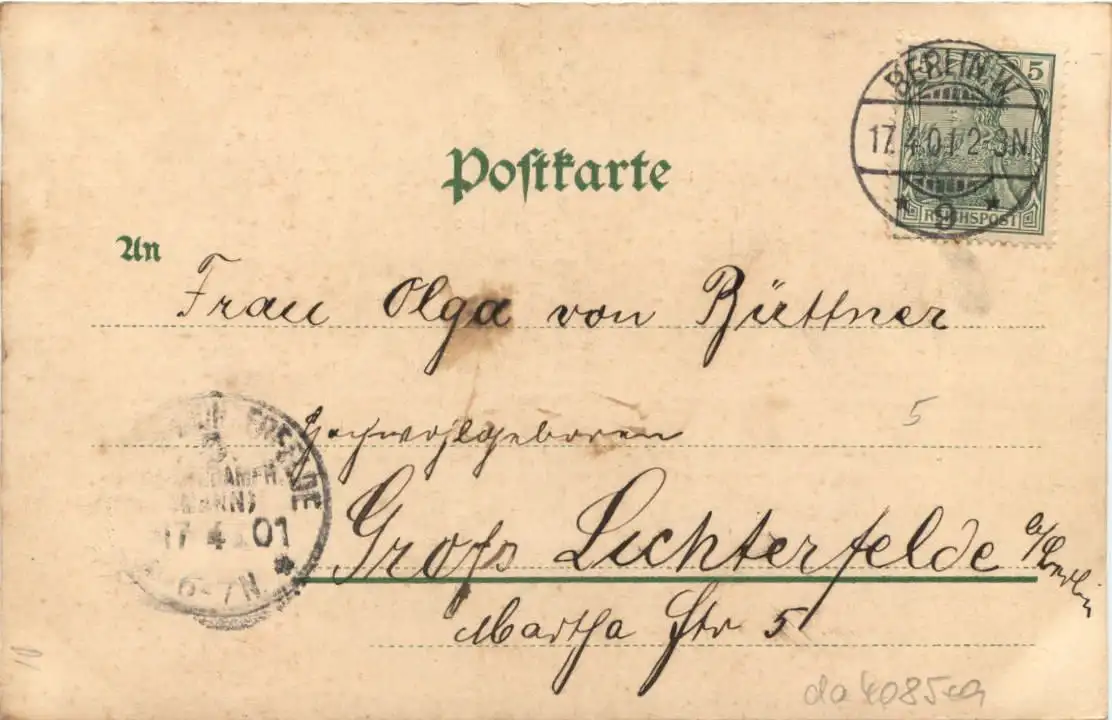 BERLIN.W.
17.4.01.2-3N.
* 9 *
5
REICHSPOST
Postkarte
An
Frau Olga von Büttner
Hochwohlgeboren
5
Groß Lichterfelde a/Berlin
Martha Str 5
17 4 01
6-7N
da4085